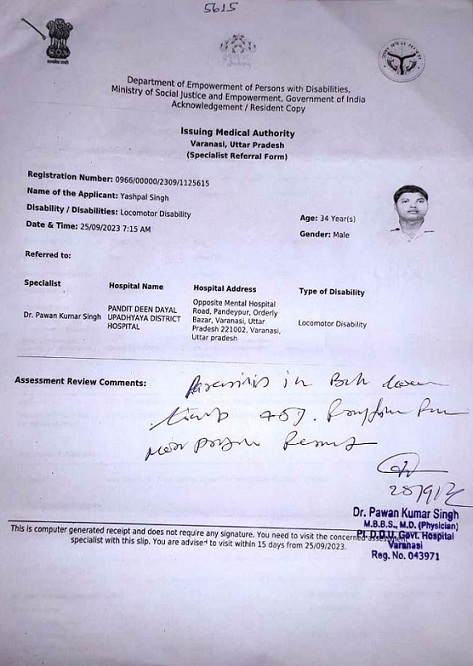 5615
Department of Empowerment of Persons with Disabilities,
Ministry of Social Justice and Empowerment, Government of India
Acknowledgement / Resident Copy
Issuing Medical Authority
Varanasi, Uttar Pradesh
(Specialist Referral Form)
Registration Number: 0966/00000/2309/1125615
Name of the Applicant: Yashpal Singh
Disability / Disabilities: Locomotor Disability
Age: 34 Year(s)
Date & Time: 25/09/2023 7:15 AM
Gender: Male
Referred to:
Specialist Hospital Name Hospital Address Type of Disability
Dr. Pawan Kumar Singh PANDIT DEEN DAYAL UPADHYAYA DISTRICT HOSPITAL
Opposite Mental Hospital
Road, Pandeypur, Orderly
Bazar, Varanasi, Uttar
Pradesh 221002, Varanasi,
Uttar pradesh
Locomotor Disability
Assessment Review Comments:
in Both
Dr. Pawan Kumar Singh
M.B.B.S., M.D. (Physician)
Pt. D.D.U. Govt. Hospital
Varanasi
Reg. No. 043971
This is computer generated receipt and does not require any signature. You need to visit the concerned
specialist with this slip. You are advised to visit within 15 days from 25/09/2023.